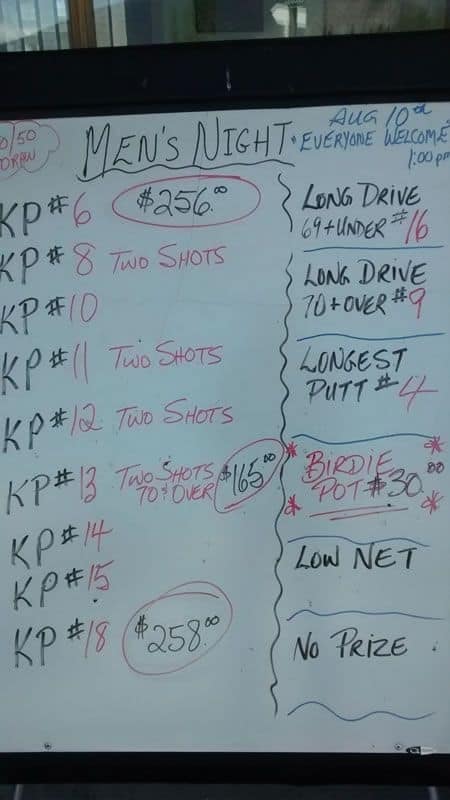 50/50
DRAW
MEN'S NIGHT
AUG 10th
• EVERYONE WELCOME
1:00 pm
KP # 6 $256.00
KP # 8 TWO SHOTS
KP # 10
KP # 11 TWO SHOTS
KP # 12 TWO SHOTS
KP # 13 TWO SHOTS
70 & OVER $165.00
KP # 14
KP # 15
KP # 18 $258.00
LONG DRIVE
69 + UNDER # 16
LONG DRIVE
70 + OVER # 9
LONGEST
PUTT # 4
* BIRDIE *
* POT $30.00 *
LOW NET
NO PRIZE .